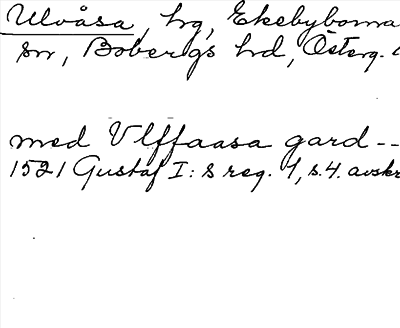 Ulvåsa, hg, Ekebyborna
sn, Bobergs hd, Österg.
med Vlffaasa gard --
1521 Gustaf I:s reg. 1, s. 4. avskr